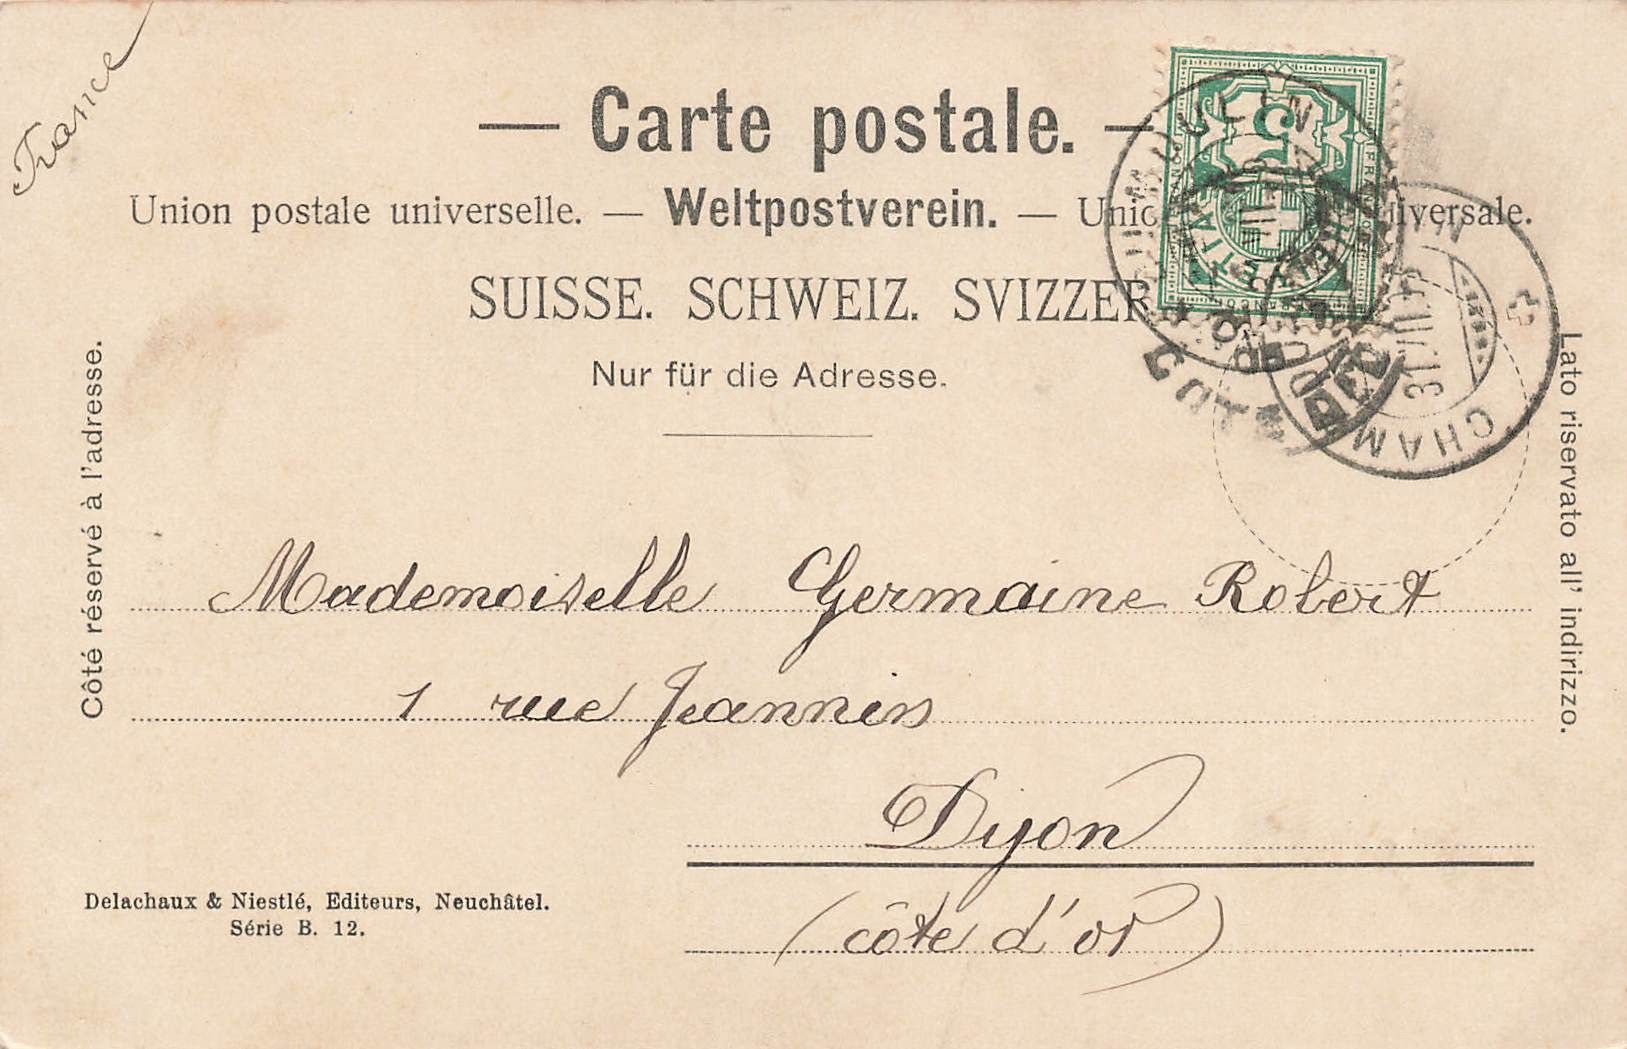 France
— Carte postale. —
Union postale universelle. — Weltpostverein. —
SUISSE. SCHWEIZ. SVIZZER
Nur für die Adresse.
Côté réservé à l'adresse.
Lato riservato all' indirizzo.
5
CHAM
Mademoiselle Germaine Robert
1 rue Jeannin
Dijon
(côte d'or)
Delachaux & Niestlé, Editeurs, Neuchâtel.
Série B. 12.